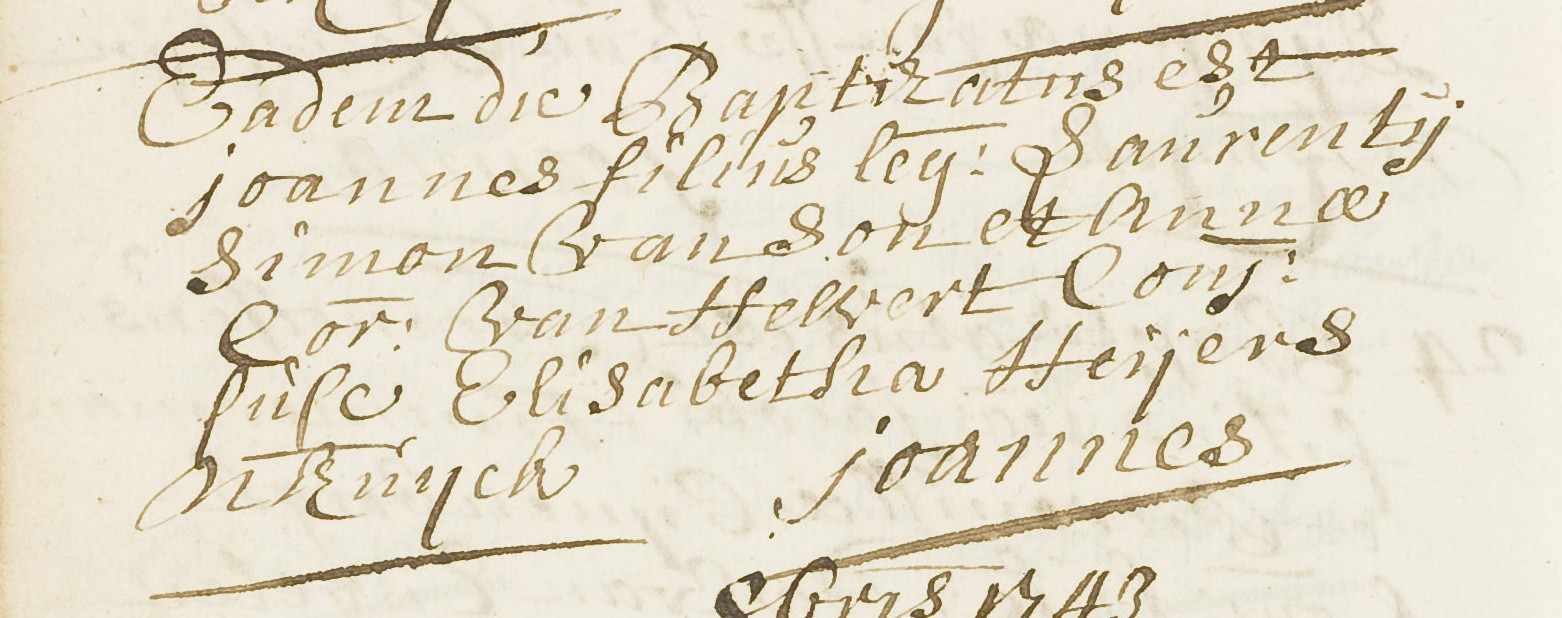 Eadem die Baptizatus est
joannes filius leg: Laurentij
Simon van Son et Annæ
Cor: van Helvert Conj:
susc Elisabetha Heijers
joannes
8bris 1743